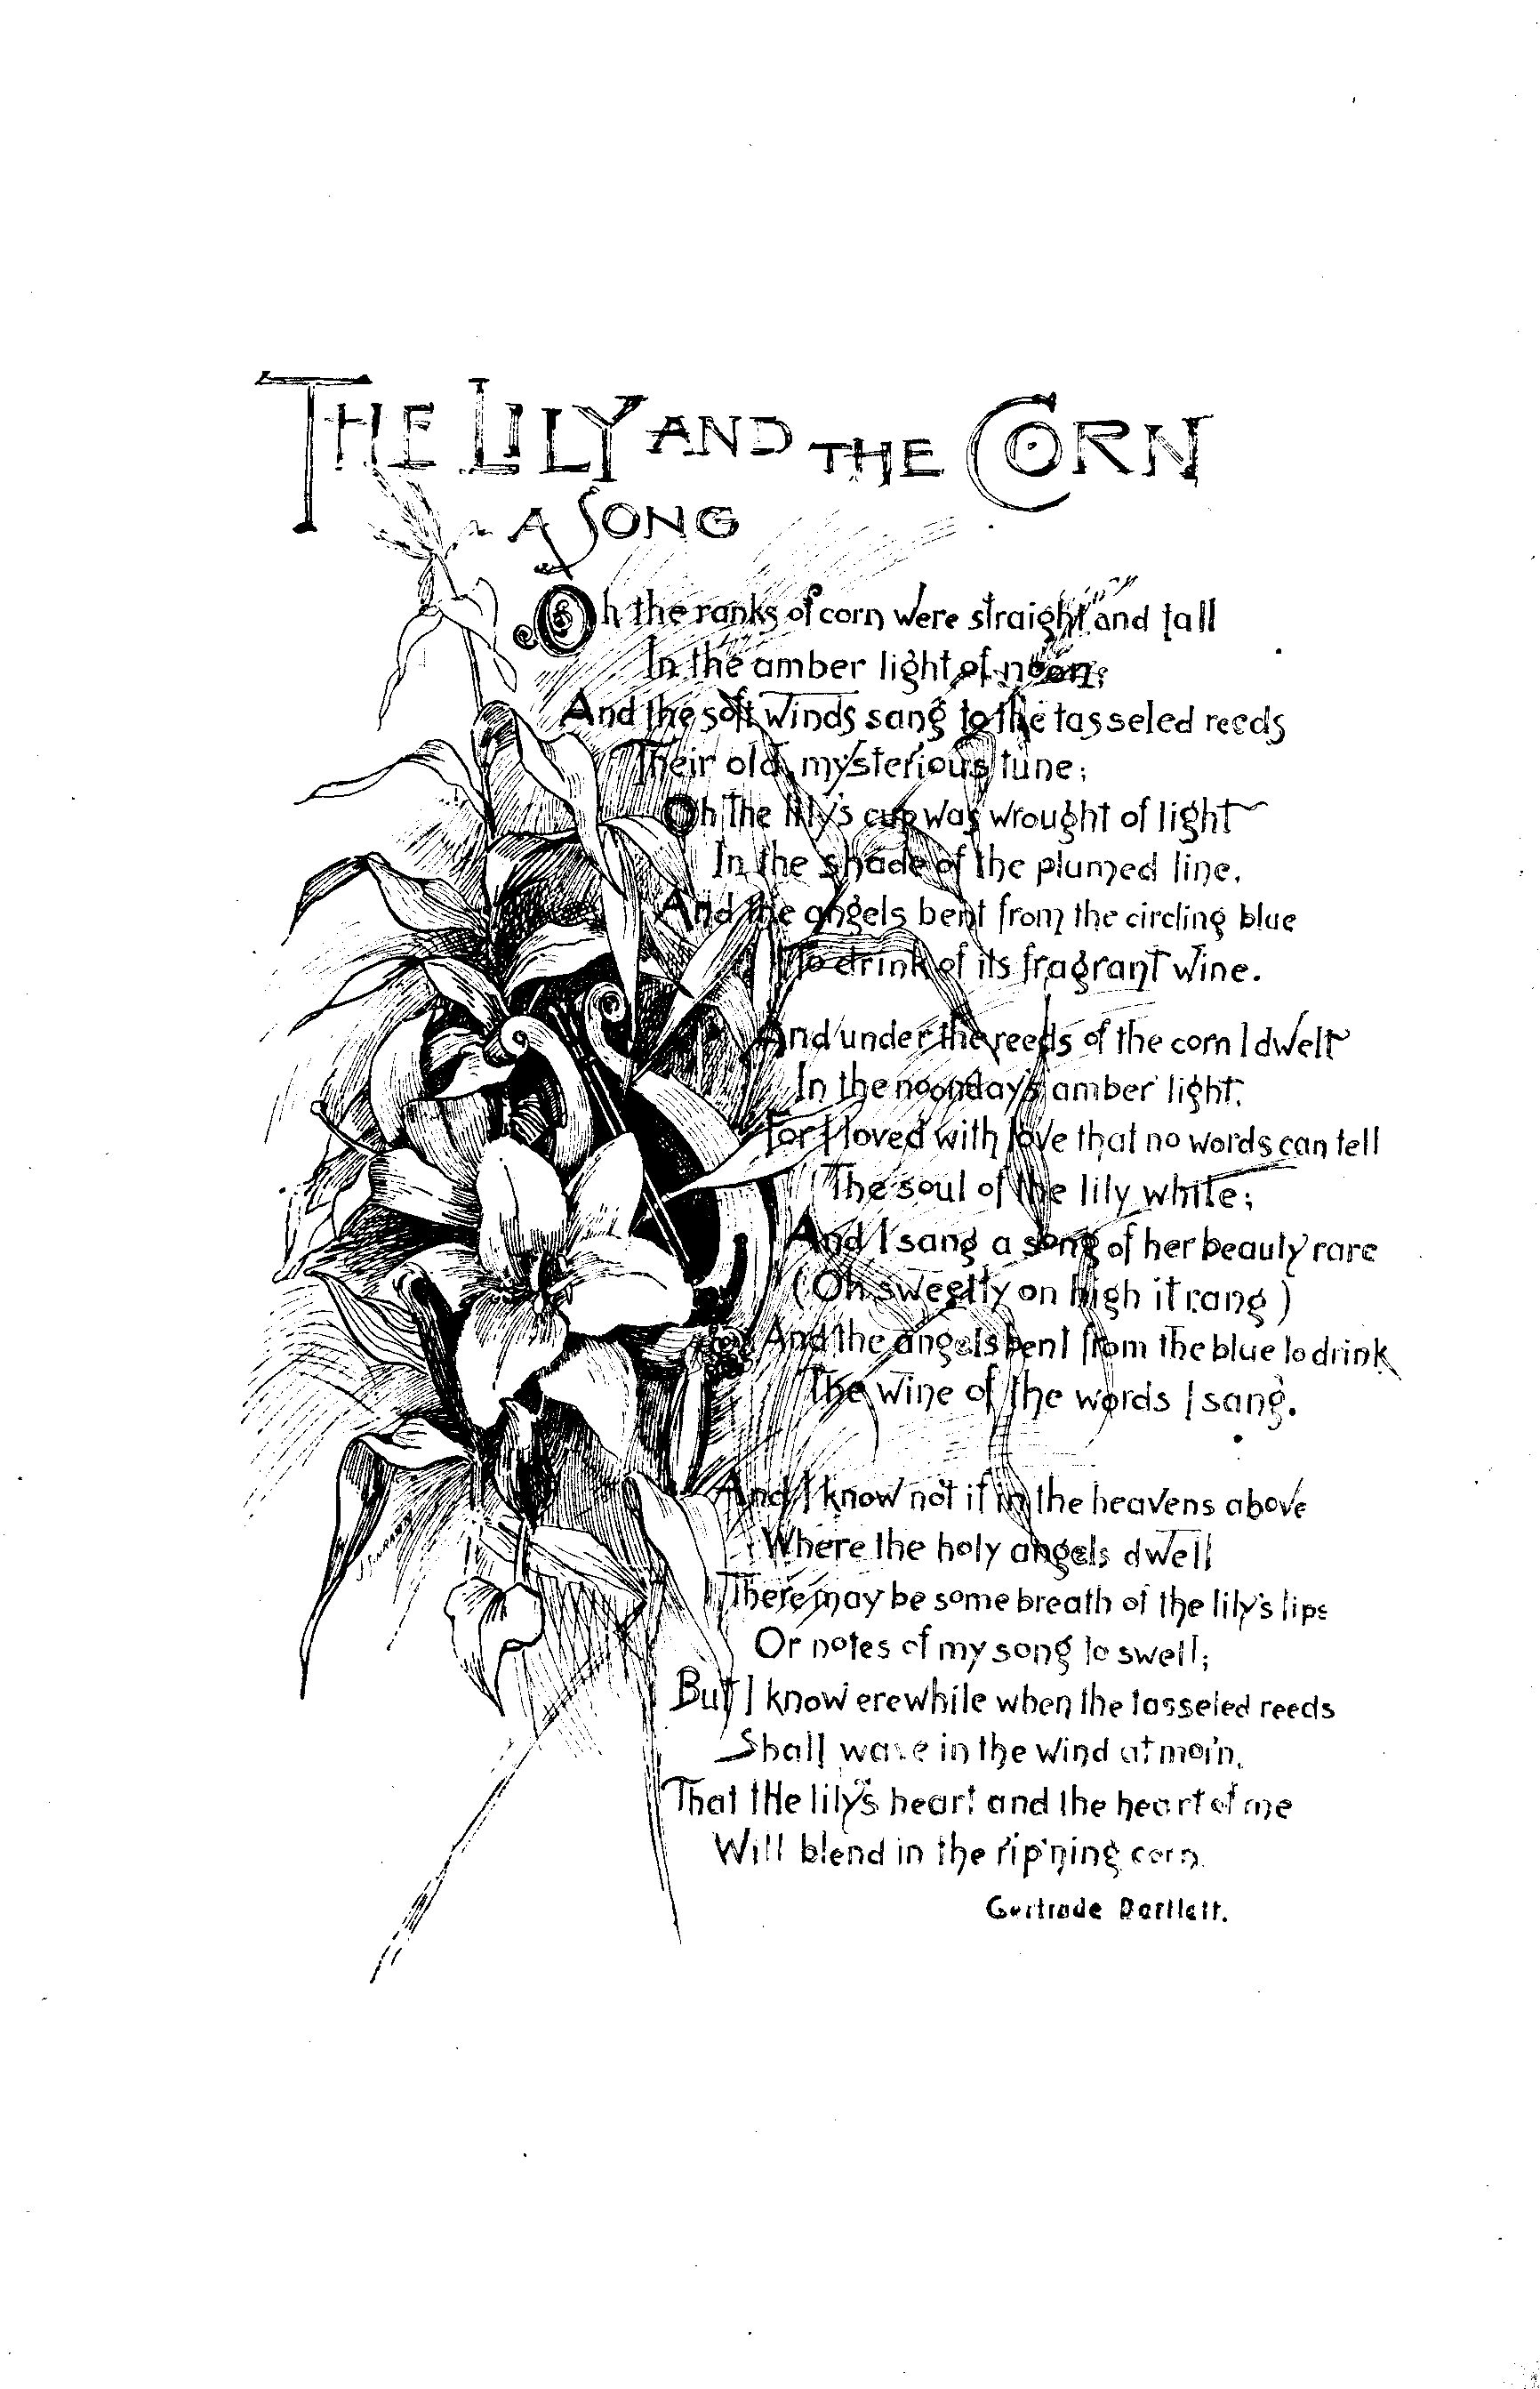 THE LILY AND THE CORN
A SONG
Oh the ranks of corn were straight and tall
In the amber light of noon;
And the soft winds sang to the tasseled reeds
Their old, mysterious tune;
Oh the lily's cup was wrought of light
In the shade of the plumed line,
And the angels bent from the circling blue
To drink of its fragrant wine.
And under the reeds of the corn I dwelt
In the noonday's amber light,
For I loved with love that no words can tell
The soul of the lily white;
And I sang a song of her beauty rare
(Oh sweetly on high it rang)
And the angels bent from the blue to drink
The wine of the words I sang.
And I know not if in the heavens above
Where the holy angels dwell
There may be some breath of the lily's lips
Or notes of my song to swell;
But I know erewhile when the tasseled reeds
Shall wave in the wind at morn,
That tHe lily's heart and the heart of me
Will blend in the rip'ning corn.
Gertrude Bartlett.